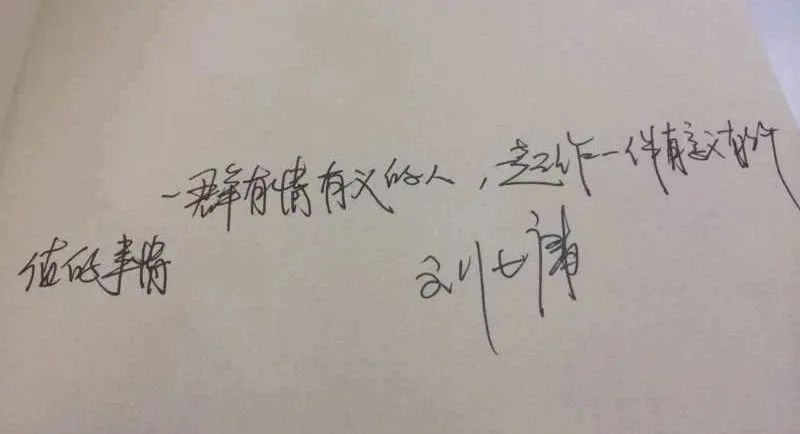 一群有情有义的人，一起作一件有意义有价
值的事情
刘七清